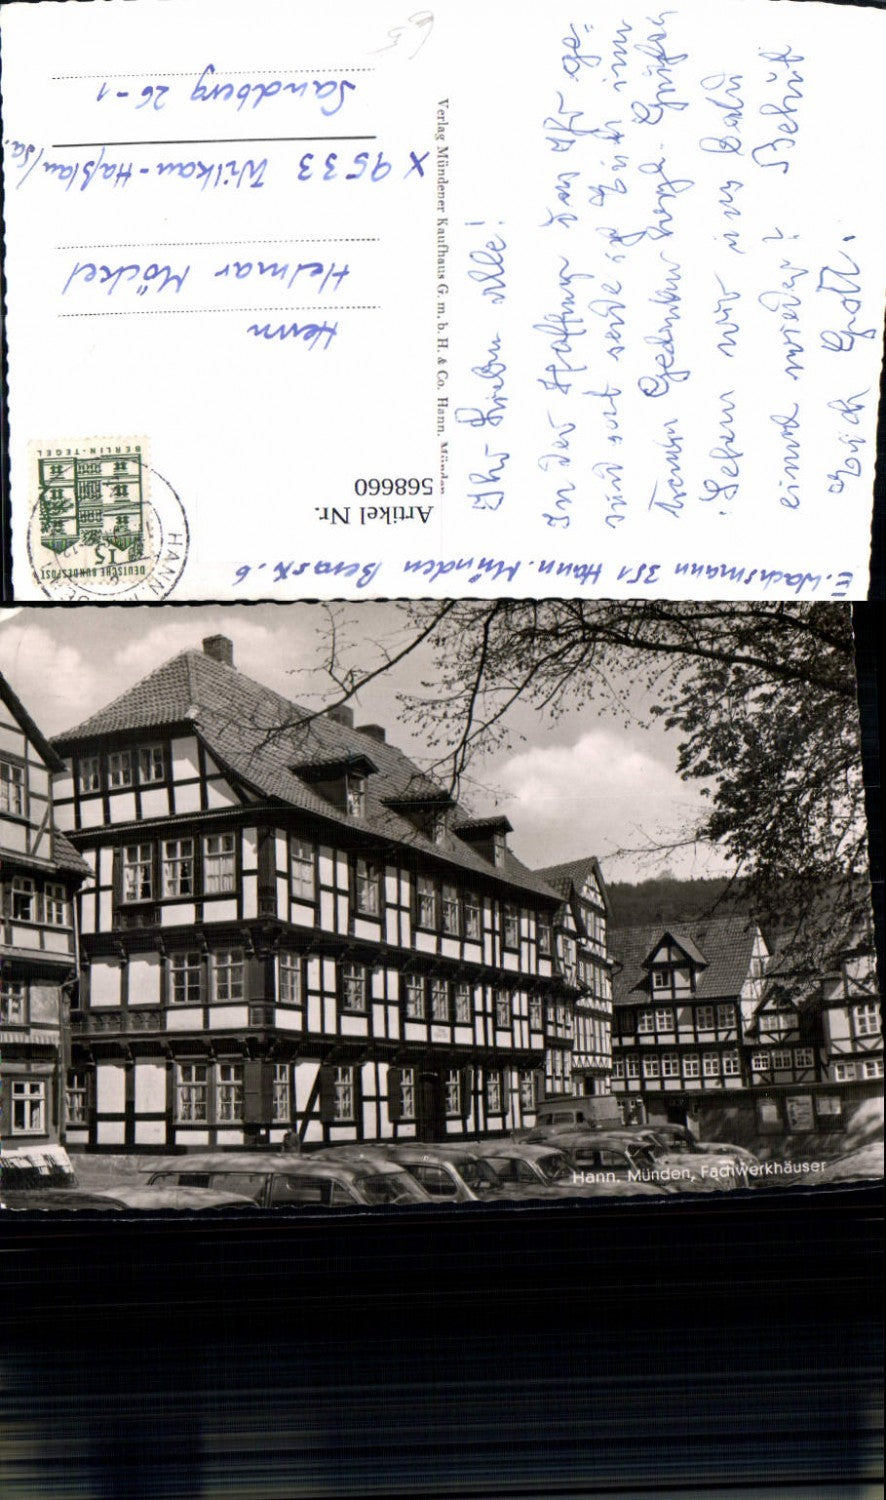 E. Wachsmann 351 Hann. Münden
Ihr Lieben alle!
In der Hoffnung daß Ihr ge=
sund seid sende ich Euch im
treuen Gedenken herzl. Grüße
Sehen wir uns bald
einmal wieder? Behüt
Euch Gott.
Verlag Mündener Kaufhaus G. m. b. H. & Co. Hann. Münden
Artikel Nr.
568660
DEUTSCHE BUNDESPOST
15
BERLIN-TEGEL
HANN.
Herrn
Helmar Möckel
X 9533 Wilkau-Haßlau/Sa.
Sandberg 26-1
Hann. Münden, Fachwerkhäuser